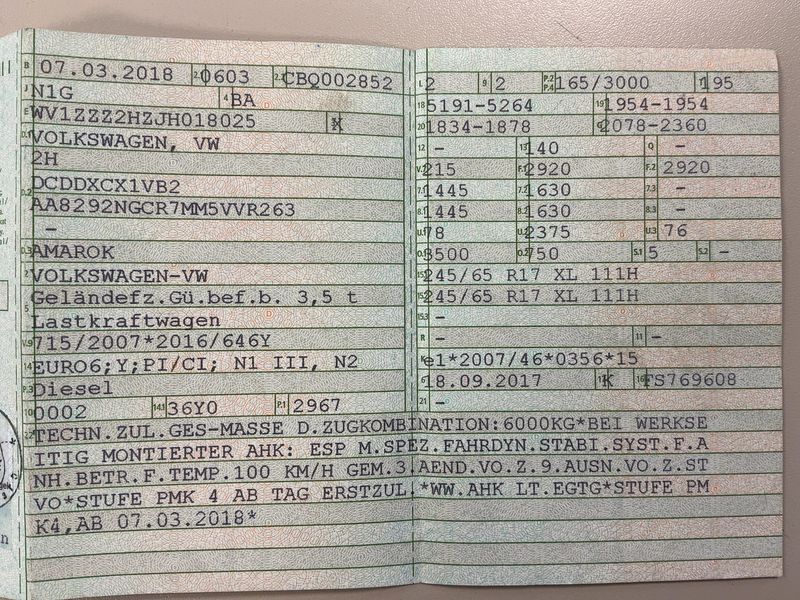 B 07.03.2018 2.1 0603 2.2 CBQ002852
J N1G 4 BA
E WV1ZZZ2HZJH018025 K
D.1 VOLKSWAGEN, VW
2H
D.2 DCDDXCX1VB2
AA8292NGCR7MM5VVR263
-
D.3 AMAROK
2 VOLKSWAGEN-VW
Geländefz.Gü.bef.b. 3,5 t
5 Lastkraftwagen
V.9 715/2007*2016/646Y
14 EURO6;Y;PI/CI; N1 III, N2
P.3 Diesel
10 0002 14.1 36Y0 P.1 2967
L 2 9 2 P.2 P.4 165/3000 T 195
18 5191-5264 19 1954-1954
20 1834-1878 G 2078-2360
12 - 13 140 Q -
V.7 215 F.1 2920 F.2 2920
7.1 1445 7.2 1630 7.3 -
8.1 1445 8.2 1630 8.3 -
U.1 78 U.2 2375 U.3 76
O.1 3500 O.2 750 S.1 5 S.2 -
15.1 245/65 R17 XL 111H
15.2 245/65 R17 XL 111H
15.3 -
R - 11 -
K e1*2007/46*0356*15
6 18.09.2017 17 K 16 FS769608
21 -
TECHN.ZUL.GES-MASSE D.ZUGKOMBINATION:6000KG*BEI WERKSE
ITIG MONTIERTER AHK: ESP M.SPEZ.FAHRDYN.STABI.SYST.F.A
NH.BETR.F.TEMP.100 KM/H GEM.3.AEND.VO.Z.9.AUSN.VO.Z.ST
VO*STUFE PMK 4 AB TAG ERSTZUL.*WW.AHK LT.EGTG*STUFE PM
K4,AB 07.03.2018*